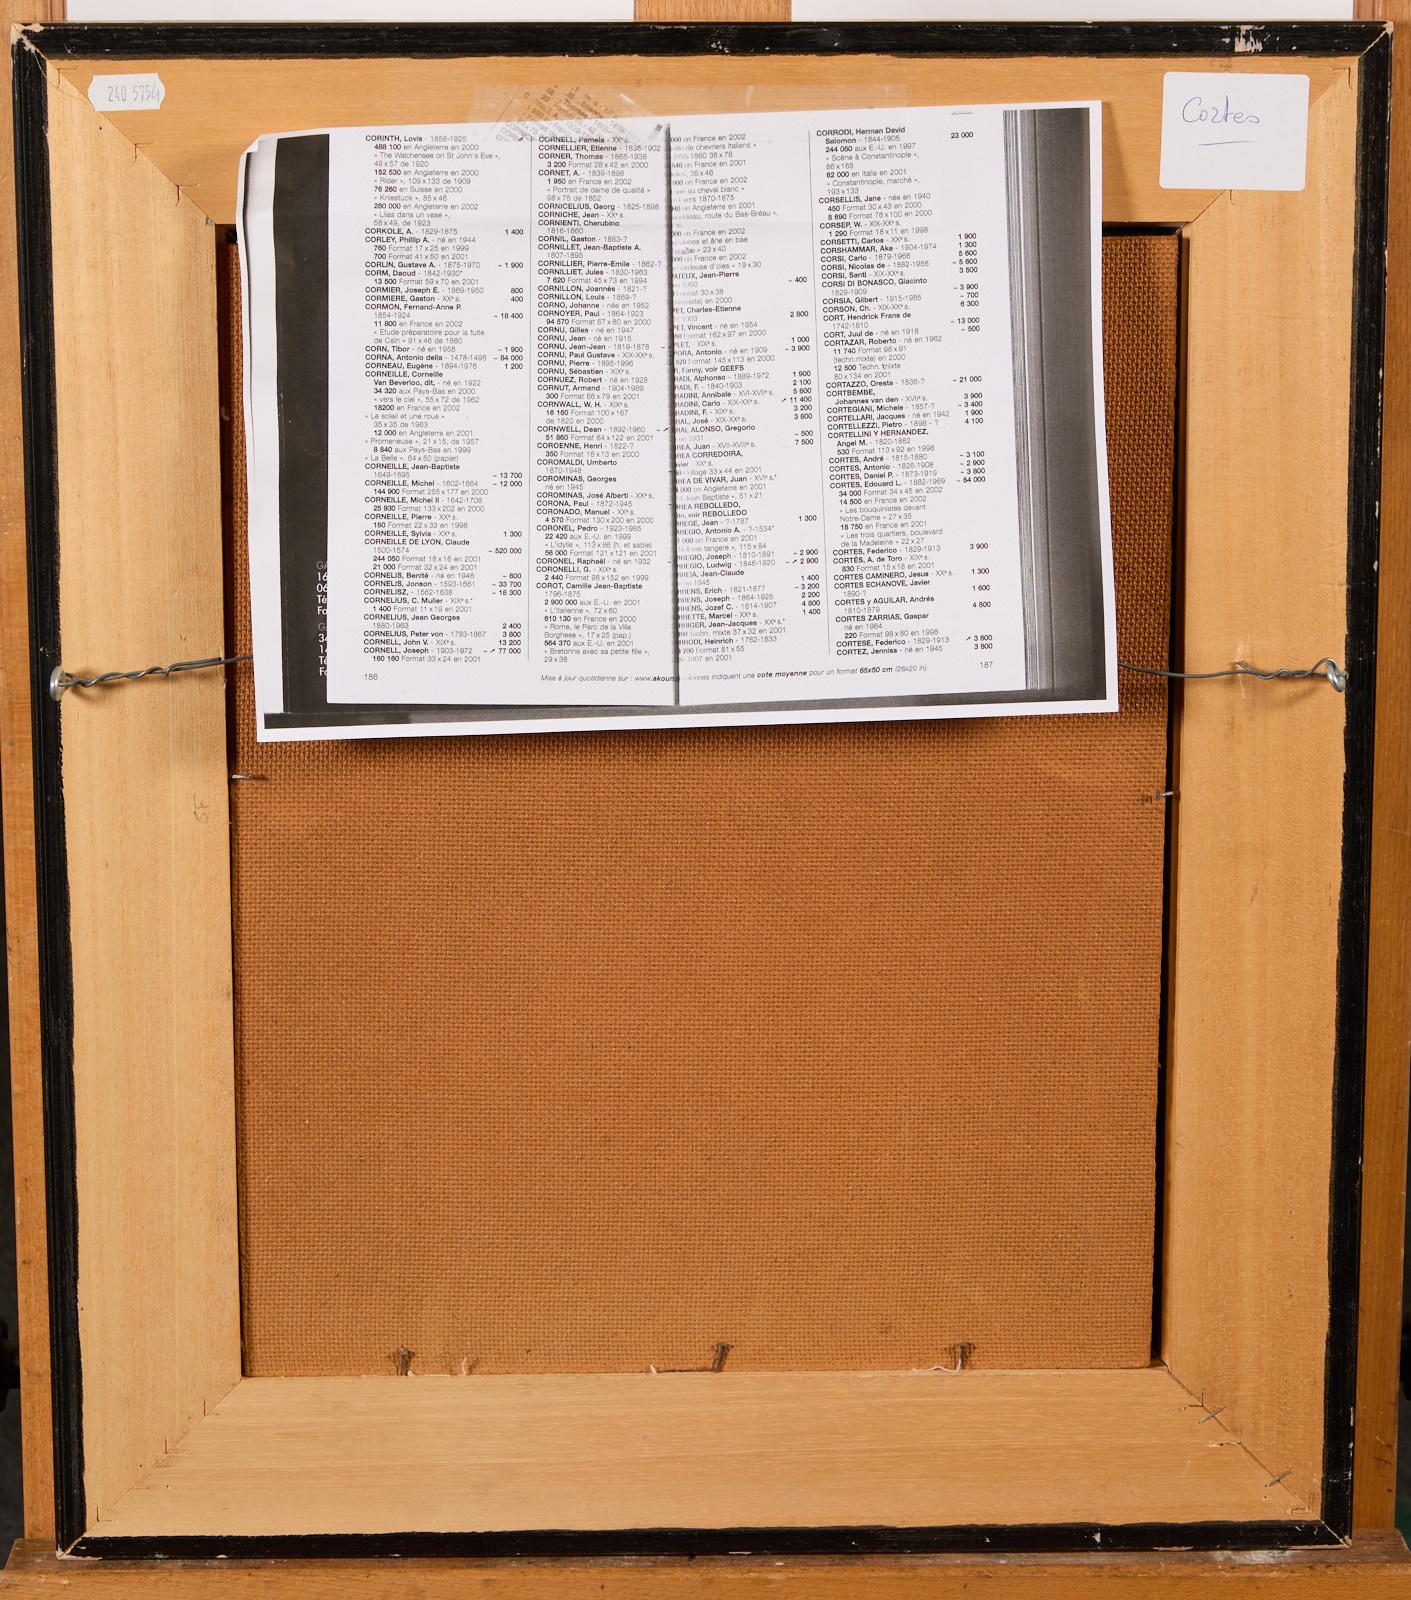 240 5754
Cortes
CORINTH, Lovis - 1858-1925
488 100 en Angleterre en 2000
« The Walchensee on St John's Eve »,
49 x 57 de 1920
152 530 en Angleterre en 2000
« Rider », 109 x 133 de 1909
76 260 en Suisse en 2000
« Kniestuck », 85 x 46
280 000 en Angleterre en 2002
« Lilas dans un vase »,
58 x 49, de 1923
CORKOLE, A. - 1829-1875 1 400
CORLEY, Phillip A. - né en 1944
760 Format 17 x 25 en 1999
700 Format 41 x 50 en 2001
CORLIN, Gustave A. - 1875-1970 ~ 1 900
CORM, Daoud - 1842-1930*
13 500 Format 59 x 70 en 2001
CORMIER, Joseph E. - 1869-1950 800
CORMIERE, Gaston - XXe s. 400
CORMON, Fernand-Anne P.
1854-1924 ~ 18 400
11 800 en France en 2002
« Etude préparatoire pour la fuite
de Caïn » 91 x 46 de 1880
CORN, Tibor - né en 1958 ~ 1 900
CORNA, Antonio della - 1478-1498 ~ 84 000
CORNEAU, Eugène - 1894-1976 1 200
CORNEILLE, Corneille
Van Beverloo, dit, - né en 1922
34 320 aux Pays-Bas en 2000
« vers le ciel », 55 x 72 de 1962
18200 en France en 2002
« Le soleil et une roue »
35 x 35 de 1963
12 000 en Angleterre en 2001
« Promeneuse », 21 x 15, de 1957
8 840 aux Pays-Bas en 1999
« La Belle », 64 x 50 (papier)
CORNEILLE, Jean-Baptiste
1649-1695 ~ 13 700
CORNEILLE, Michel - 1602-1664 ~ 12 000
144 900 Format 255 x 177 en 2000
CORNEILLE, Michel II - 1642-1708
25 930 Format 133 x 202 en 2000
CORNEILLE, Pierre - XXe s.
150 Format 22 x 33 en 1998
CORNEILLE, Sylvia - XXe s. 1 300
CORNEILLE DE LYON, Claude
1500-1574 ~ 520 000
244 050 Format 18 x 16 en 2001
21 000 Format 32 x 24 en 2001
CORNELIS, Benité - né en 1946 ~ 800
CORNELIS, Jonson - 1593-1661 ~ 33 700
CORNELISZ, - 1562-1638 ~ 18 300
CORNELIUS, C. Muller - XIXe s.*
1 400 Format 11 x 19 en 2001
CORNELIUS, Jean Georges
1880-1963 2 400
CORNELIUS, Peter von - 1783-1867 3 800
CORNELL, John V. - XIXe s. 13 200
CORNELL, Joseph - 1903-1972 77 000
160 160 Format 33 x 24 en 2001
186
CORNELL, Pamela - XXe s.
CORNELLIER, Etienne - 1838-1902
CORNER, Thomas - 1865-1938
3 200 Format 28 x 42 en 2000
CORNET, A. - 1839-1898
1 950 en France en 2002
« Portrait de dame de qualité »
98 x 75 de 1852
CORNICELIUS, Georg - 1825-1898
CORNICHE, Jean - XXe s.
CORNIENTI, Cherubino
1816-1860
CORNIL, Gaston - 1883-?
CORNILLET, Jean-Baptiste A.
1807-1895
CORNILLIER, Pierre-Emile - 1862-?
CORNILLIET, Jules - 1830-1963
7 620 Format 45 x 73 en 1994
CORNILLON, Joannès - 1821-?
CORNILLON, Louis - 1869-?
CORNO, Johanne - née en 1952
CORNOYER, Paul - 1864-1923
94 570 Format 67 x 80 en 2000
CORNU, Gilles - né en 1947
CORNU, Jean - né en 1915
CORNU, Jean-Jean - 1819-1878
CORNU, Paul Gustave - XIX-XXe s.
CORNU, Pierre - 1895-1996
CORNU, Sébastien - XXe s.
CORNUEZ, Robert - né en 1928
CORNUT, Armand - 1904-1989
300 Format 66 x 79 en 2001
CORNWALL, W. H. - XIXe s.
16 160 Format 100 x 167
de 1820 en 2000
CORNWELL, Dean - 1892-1960
51 860 Format 64 x 122 en 2001
COROENNE, Henri - 1822-?
350 Format 18 x 13 en 2000
COROMALDI, Umberto
1870-1948
COROMINAS, Georges
né en 1945
COROMINAS, José Alberti - XXe s.
CORONA, Paul - 1872-1945
CORONADO, Manuel - XXe s.
4 570 Format 130 x 200 en 2000
CORONEL, Pedro - 1923-1985
22 420 aux E.-U. en 1999
« L'idylle », 113 x 86 (h. et sable)
56 000 Format 121 x 121 en 2001
CORONEL, Raphaël - né en 1932
CORONELLI, G. - XIXe s.
2 440 Format 98 x 152 en 1999
COROT, Camille Jean-Baptiste
1796-1875
2 900 000 aux E.-U. en 2001
« L'italienne », 72 x 60
610 130 en France en 2000
« Rome, le Parc de la Villa
Borghese », 17 x 25 (pap.)
564 370 aux E.-U. en 2001
« Bretonne avec sa petite fille »,
29 x 38
Mise à jour quotidienne sur : www.akoun.
en France en 2002
de chevriers italiens »
1660 38 x 78
en France en 2001
38 x 46
en France en 2002
au cheval blanc »
vers 1870-1875
en Angleterre en 2001
route du Bas-Bréau »,
en France en 2002
et âne en baie
23 x 40
en France en 2002
d'oies » 19 x 30
Jean-Pierre
~ 400
30 x 38
en 2000
Charles-Etienne
2 800
Vincent - né en 1954
162 x 97 en 2000
XXe s. 1 000
Antonio - né en 1909 ~ 3 900
145 x 113 en 2000
Fanny, voir GEEFS
Alphonso - 1889-1972 1 900
F. - 1840-1903 2 100
Annibale - XVI-XVIIe s. 5 600
Carlo - XIX-XXe s. 11 400
F. - XIXe s. 3 200
José - XIX-XXe s. 3 800
ALONSO, Gregorio
en 1931 ~ 500
Juan - XVII-XVIIIe s. 7 500
CORREDOIRA,
XXe s.
33 x 44 en 2001
DE VIVAR, Juan - XVIe s.*
en Angleterre en 2001
Baptiste », 51 x 21
REBOLLEDO,
voir REBOLLEDO
Jean - ?-1787 1 300
Antonio A. - ?-1534*
en France en 2001
tangere », 115 x 84
Joseph - 1810-1891 ~ 2 900
Ludwig - 1846-1920 2 900
Jean-Claude
1945 1 400
Erich - 1821-1877 ~ 3 200
Joseph - 1864-1926 2 200
Jozef C. - 1814-1907 4 800
Marcel - XXe s. 1 400
Jean-Jacques - XXe s.*
mixte 37 x 32 en 2001
Heinrich - 1762-1833
81 x 55
en 2001
indiquent une cote moyenne pour un format 65x50 cm (26x20 in)
CORRODI, Herman David
Salomon - 1844-1905 23 000
244 050 aux E.-U. en 1997
« Scène à Constantinople »,
86 x 165
62 000 en Italie en 2001
« Constantinople, marché »,
193 x 133
CORSELLIS, Jane - née en 1940
450 Format 30 x 43 en 2000
8 690 Format 76 x 100 en 2000
CORSEP, W. - XIX-XXe s.
1 290 Format 18 x 11 en 1998
CORSETTI, Carlos - XXe s. 1 900
CORSHAMMAR, Ake - 1904-1974 1 300
CORSI, Carlo - 1879-1966 5 600
CORSI, Nicolas de - 1882-1956 ~ 5 600
CORSI, Santi - XIX-XXe s. 3 500
CORSI DI BONASCO, Giacinto
1829-1909 ~ 3 900
CORSIA, Gilbert - 1915-1985 ~ 700
CORSON, Ch. - XIX-XXe s. 6 300
CORT, Hendrick Frans de
1742-1810 ~ 13 000
CORT, Juul de - né en 1918 ~ 500
CORTAZAR, Roberto - né en 1962
11 740 Format 98 x 91
(techn.mixte) en 2000
12 500 Techn. mixte
80 x 134 en 2001
CORTAZZO, Oreste - 1836-? ~ 21 000
CORTBEMBE,
Johannes van den - XVIIe s. 3 900
CORTEGIANI, Michele - 1857-? ~ 3 400
CORTELLARI, Jacques - né en 1942 1 900
CORTELLEZZI, Pietro - 1898 - ? 4 100
CORTELLINI Y HERNANDEZ,
Angel M. - 1820-1882
530 Format 113 x 92 en 1998
CORTES, André - 1815-1880 ~ 3 100
CORTES, Antonio - 1826-1908 ~ 2 900
CORTES, Daniel P. - 1873-1919 ~ 3 800
CORTES, Edouard L. - 1882-1969 ~ 64 000
34 000 Format 34 x 45 en 2002
14 500 en France en 2002
« Les bouquinistes devant
Notre-Dame » 27 x 35
18 750 en France en 2001
« Les trois quartiers, boulevard
de la Madeleine » 22 x 27
CORTES, Federico - 1829-1913 3 900
CORTÉS, A. de Toro - XIXe s.
830 Format 15 x 18 en 2001
CORTES CAMINERO, Jesus - XXe s. 1 300
CORTES ECHANOVE, Javier
1890-? 1 600
CORTES y AGUILAR, Andrés
1810-1879 4 800
CORTES ZARRIAS, Gaspar
né en 1964
220 Format 98 x 80 en 1998
CORTESE, Federico - 1829-1913 3 600
CORTEZ, Jenniss - né en 1945 3 800
187
6F